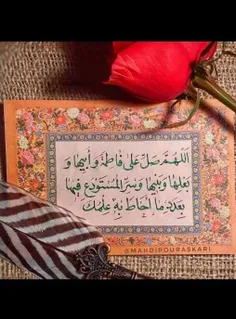 اَللّهُمَّ صَلِّ عَلی فاطِمَةَ وَ اَبیها وَ
بَعْلِها وَ بَنیها وَ سِرِّ الْمُسْتَوْدَعِ فیها
بِعَدَدِ ما اَحاطَ بِهِ عِلْمُكَ
@MAHDIPOURASKARI